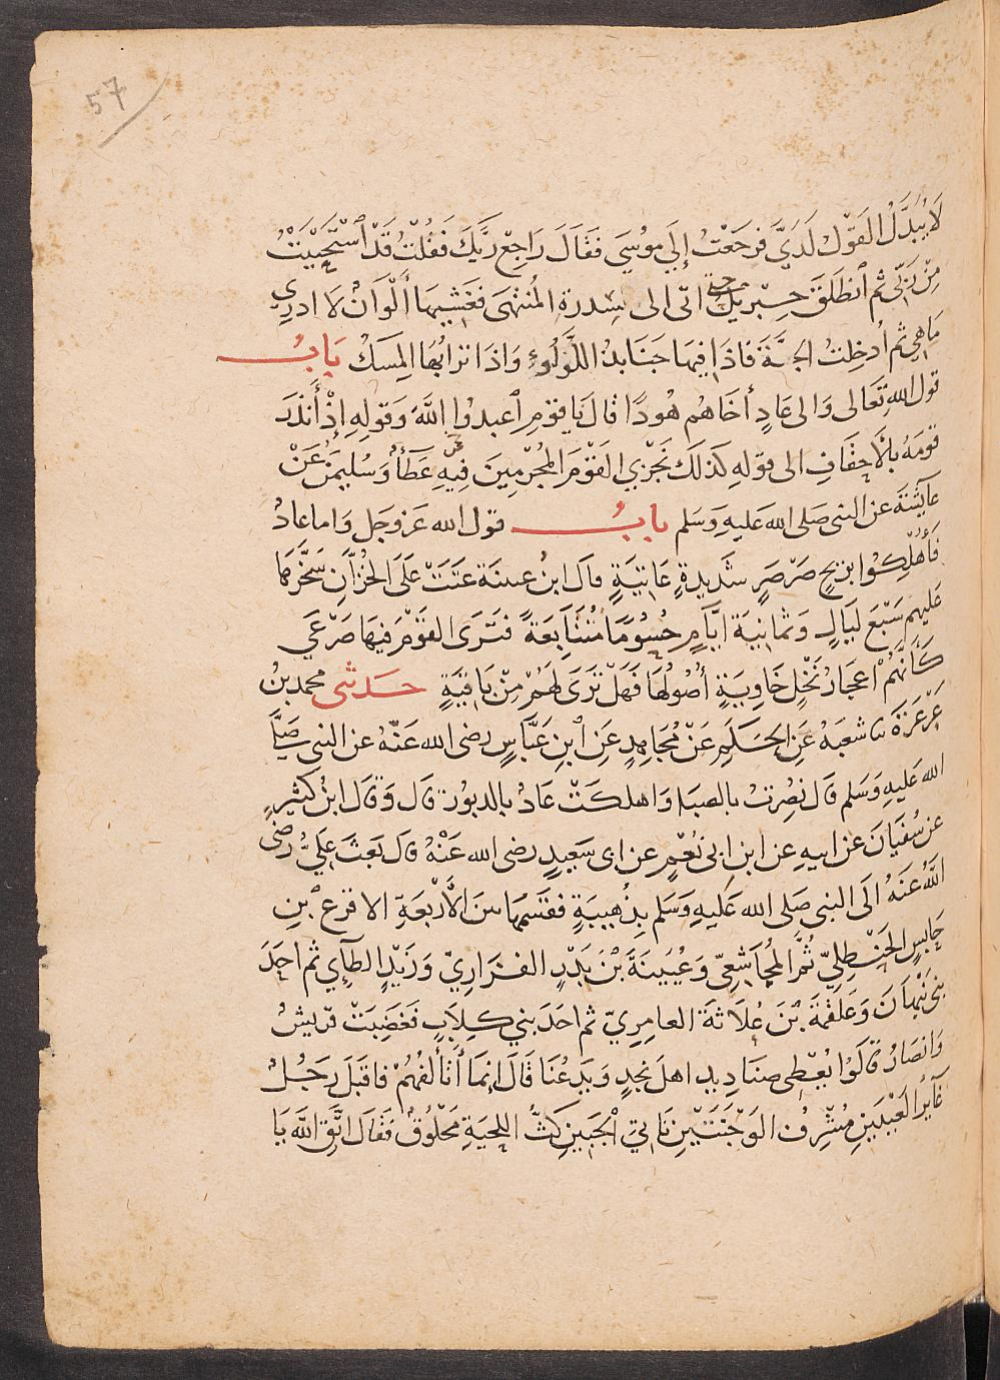 57
لَا يُبَدَّلُ القَوْلُ لَدَيَّ فَرَجَعْتُ إِلَى مُوسَى فَقَالَ رَاجِعْ رَبَّكَ فَقُلْتُ قَدْ اسْتَحْيَيْتُ
مِنْ رَبِّي ثُم انطَلَقَ جِبْرِيلُ حتى اتى الى سِدرةِ المُنتَهَى فغَشِيهَا أَلْوَانٌ لَا ادرِي
مَا هِيَ ثم أُدخِلتُ الجنَّةَ فاذَا فِيهَا جَنَابِذُ اللُّؤلُوءِ وَاذَا ترابُهَا المِسكُ بَابُ
قول اللهِ تَعَالى وَالى عَادٍ أخَاهُم هُودًا قالَ يَا قَومِ اعبدُوا اللَّهَ وَقولِهِ إِذْ أَنذَرَ
قومَهُ بالأحقَافِ الى قولهِ كذلكَ نَجْزِي القَوْمَ المُجْرِمِينَ فِيهِ عن عَطَاءٌ وَسُليمَن عَنْ
عَايشَةَ عن النبى صَلى الله عَليهِ وَسَلم بابُ قول الله عَز وجَل وَاما عادٌ
فَأُهْلِكُوا بريحٍ صَرْصَرٍ شَدِيدةٍ عَاتِيَةٍ قال ابنُ عيينَة عَتَتْ عَلَى الخُزَّانِ سَخَّرَهَا
عَلَيهِم سَبْعَ لَيَالٍ وَثمَانِيَةَ ايَّامٍ حُسُومًا مُتَتَابِعَةً فتَرَى القَوْمَ فِيهَا صَرْعَى
كَأَنَّهُمْ اعجَازُ نَخْلٍ خَاوِيَةٍ أُصُولُهَا فَهَلْ تَرَى لَهُمْ مِنْ بَاقِيَةٍ حَدثنى محمد بنُ
عَرْعَرَةَ ثنا شعبَهُ عَنِ الحَكَمِ عَنْ مُجَاهِدٍ عَنِ ابنِ عَبَّاسٍ رضى الله عَنْهُ عن النبى صَلَّى
الله عَليهِ وَسَلم قَال نُصِرتُ بالصبَا وَاهلكَتْ عَادٌ بالدبور قال وَقَال ابنُ كَثيرٍ
عن سُفيَانَ عَن ابيهِ عن ابنِ ابى نُعْمٍ عن ابى سَعِيدٍ رضى الله عَنْهُ قال بَعَثَ عَلِيٌّ رضى
اللهُ عَنهُ الَى النبى صَلى الله عَليهِ وَسَلم بِذُهَيبَةٍ فقسَمهَا بين الأَرْبَعَةِ الاقرعِ بْنِ
حَابِسٍ الحَنْظِلِيِّ ثُمَّ المُجَاشِعِيّ وَعُيَينَةَ بْنَ بَدْرٍ الفَزَارِيّ وَزَيْدٍ الطَّايى ثم احَدَ
بنى نَبْهَانَ وَعَلقَمَةَ بْنَ عُلَاثَةَ العَامِرِيّ ثم احدَ بَنِي كِلَابٍ فَغَضِبَتْ قريشٌ
وَانصَارُ قَالوُا يُعْطِى صَنَادِيد اهلَ نجدٍ وَيدَعُنَا قَالَ إِنمَا أَتأَلفُهُمْ فاقبَل رَجُلٌ
غَايِرُ العَيْنَينِ مُشْرِفُ الوَجْنَتَيْنِ نَاتِئ الجَبينِ كَثُّ اللحيَةِ مَحْلُوقٌ فَقَالَ اتَّقِ اللَّهَ يَا